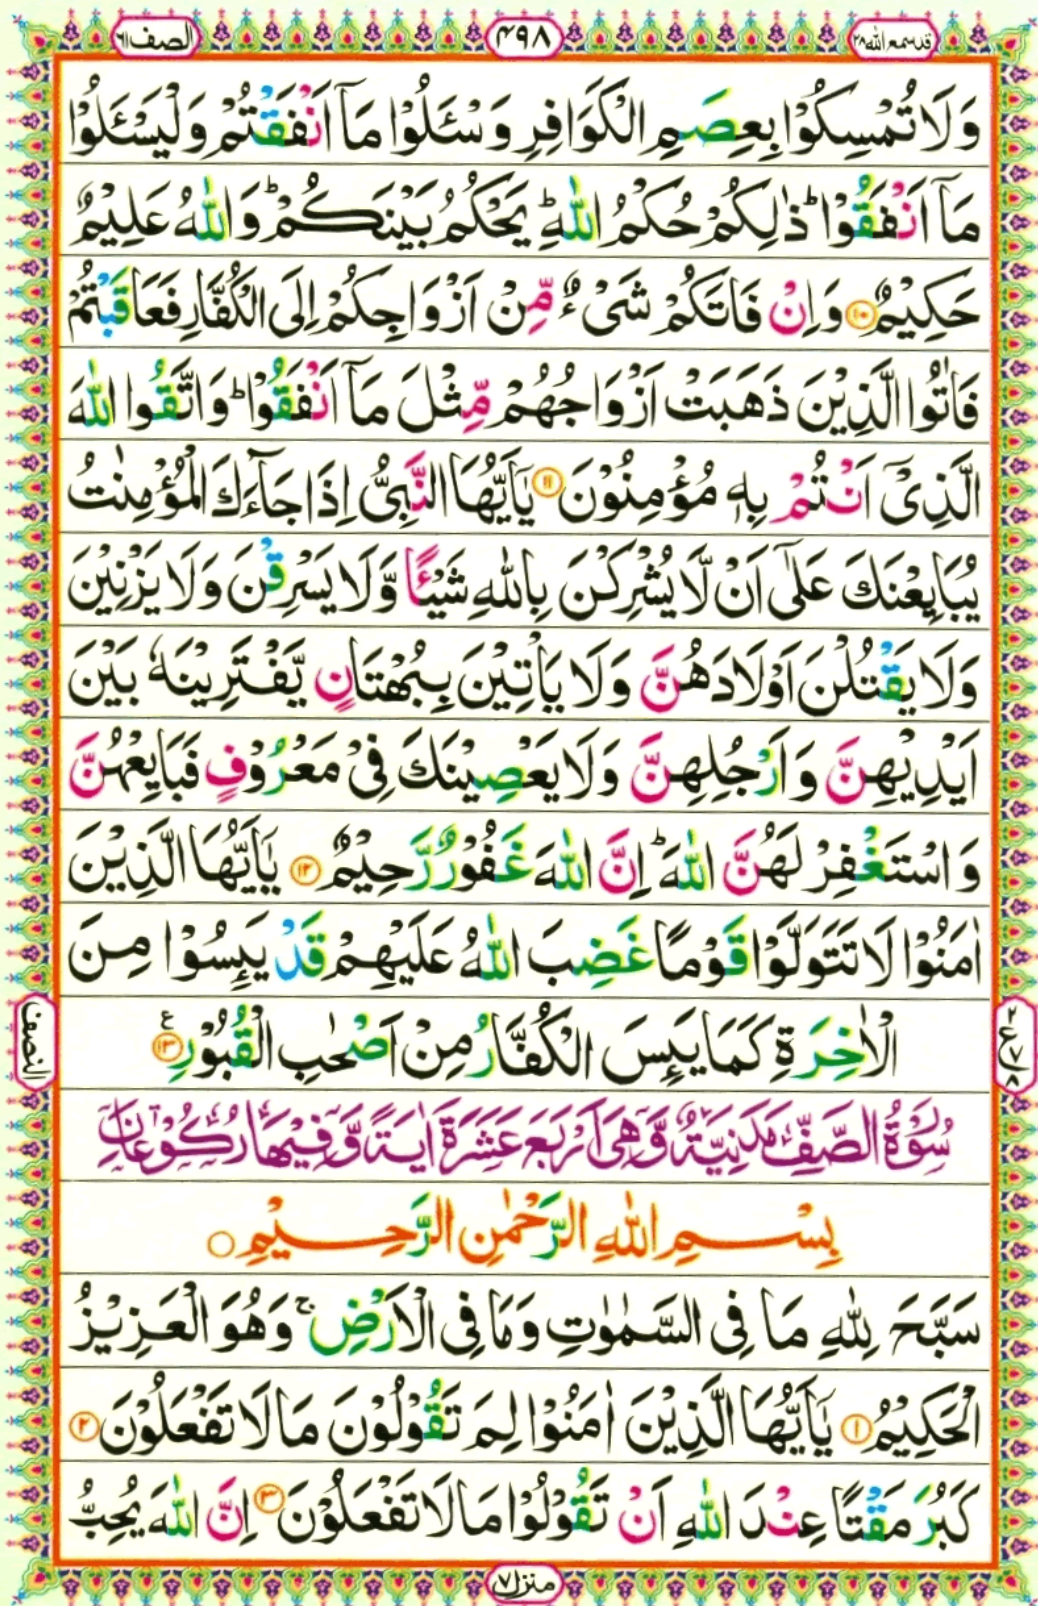 قد سمع الله ٢٨
٤٩٨
الصف ٦١
وَلَا تُمْسِكُوْا بِعِصَمِ الْكَوَافِرِ وَسْـَٔلُوْا مَاۤ اَنْفَقْتُمْ وَلْيَسْـَٔلُوْا
مَاۤ اَنْفَقُوْا ؕ ذٰلِكُمْ حُكْمُ اللّٰهِ ؕ يَحْكُمُ بَيْنَكُمْ ؕ وَاللّٰهُ عَلِيْمٌ
حَكِيْمٌ ۝۱۰ وَاِنْ فَاتَكُمْ شَیْءٌ مِّنْ اَزْوَاجِكُمْ اِلَی الْكُفَّارِ فَعَاقَبْتُمْ
فَاٰتُوا الَّذِيْنَ ذَهَبَتْ اَزْوَاجُهُمْ مِّثْلَ مَاۤ اَنْفَقُوْا ؕ وَاتَّقُوا اللّٰهَ
الَّذِیْۤ اَنْتُمْ بِهٖ مُؤْمِنُوْنَ ۝۱۱ يٰۤاَيُّهَا النَّبِیُّ اِذَا جَآءَكَ الْمُؤْمِنٰتُ
يُبَايِعْنَكَ عَلٰۤی اَنْ لَّا يُشْرِكْنَ بِاللّٰهِ شَيْـًٔا وَّلَا يَسْرِقْنَ وَلَا يَزْنِيْنَ
وَلَا يَقْتُلْنَ اَوْلَادَهُنَّ وَلَا يَاْتِيْنَ بِبُهْتَانٍ يَّفْتَرِيْنَهٗ بَيْنَ
اَيْدِيْهِنَّ وَاَرْجُلِهِنَّ وَلَا يَعْصِيْنَكَ فِیْ مَعْرُوْفٍ فَبَايِعْهُنَّ
وَاسْتَغْفِرْ لَهُنَّ اللّٰهَ ؕ اِنَّ اللّٰهَ غَفُوْرٌ رَّحِيْمٌ ۝۱۲ يٰۤاَيُّهَا الَّذِيْنَ
اٰمَنُوْا لَا تَتَوَلَّوْا قَوْمًا غَضِبَ اللّٰهُ عَلَيْهِمْ قَدْ يَىِٕسُوْا مِنَ
الْاٰخِرَةِ كَمَا يَىِٕسَ الْكُفَّارُ مِنْ اَصْحٰبِ الْقُبُوْرِ ۝۱۳ ع
سُوْرَةُ الصَّفِّ مَدَنِيَّةٌ وَّهِیَ اَرْبَعَ عَشَرَةَ اٰيَةً وَّفِيْهَا رُكُوْعَانِ
بِسْمِ اللّٰهِ الرَّحْمٰنِ الرَّحِيْمِ ۝
سَبَّحَ لِلّٰهِ مَا فِی السَّمٰوٰتِ وَمَا فِی الْاَرْضِ ۚ وَهُوَ الْعَزِيْزُ
الْحَكِيْمُ ۝۱ يٰۤاَيُّهَا الَّذِيْنَ اٰمَنُوْا لِمَ تَقُوْلُوْنَ مَا لَا تَفْعَلُوْنَ ۝۲
كَبُرَ مَقْتًا عِنْدَ اللّٰهِ اَنْ تَقُوْلُوْا مَا لَا تَفْعَلُوْنَ ۝۳ اِنَّ اللّٰهَ يُحِبُّ
النصف
منزل ٧